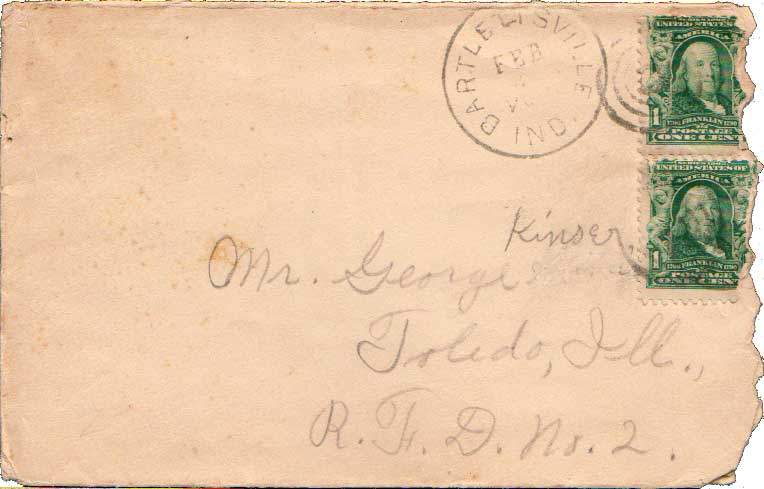 BARTLETTSVILLE IND.
FEB
UNITED STATES
AMERICA
1
1706 FRANKLIN 1790
POSTAGE
ONE CENT
UNITED STATES OF
AMERICA
1
1706 FRANKLIN 1790
POSTAGE
ONE CENT
Kinser
Mr. George
Toledo, Ill.,
R. F. D. No. 2.